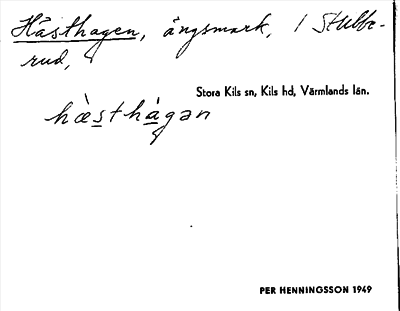 Hästhagen, ängsmark, i Stubbe-
rud,
Stora Kils sn, Kils hd, Värmlands län.
hæ̀sthàgən
PER HENNINGSSON 1949